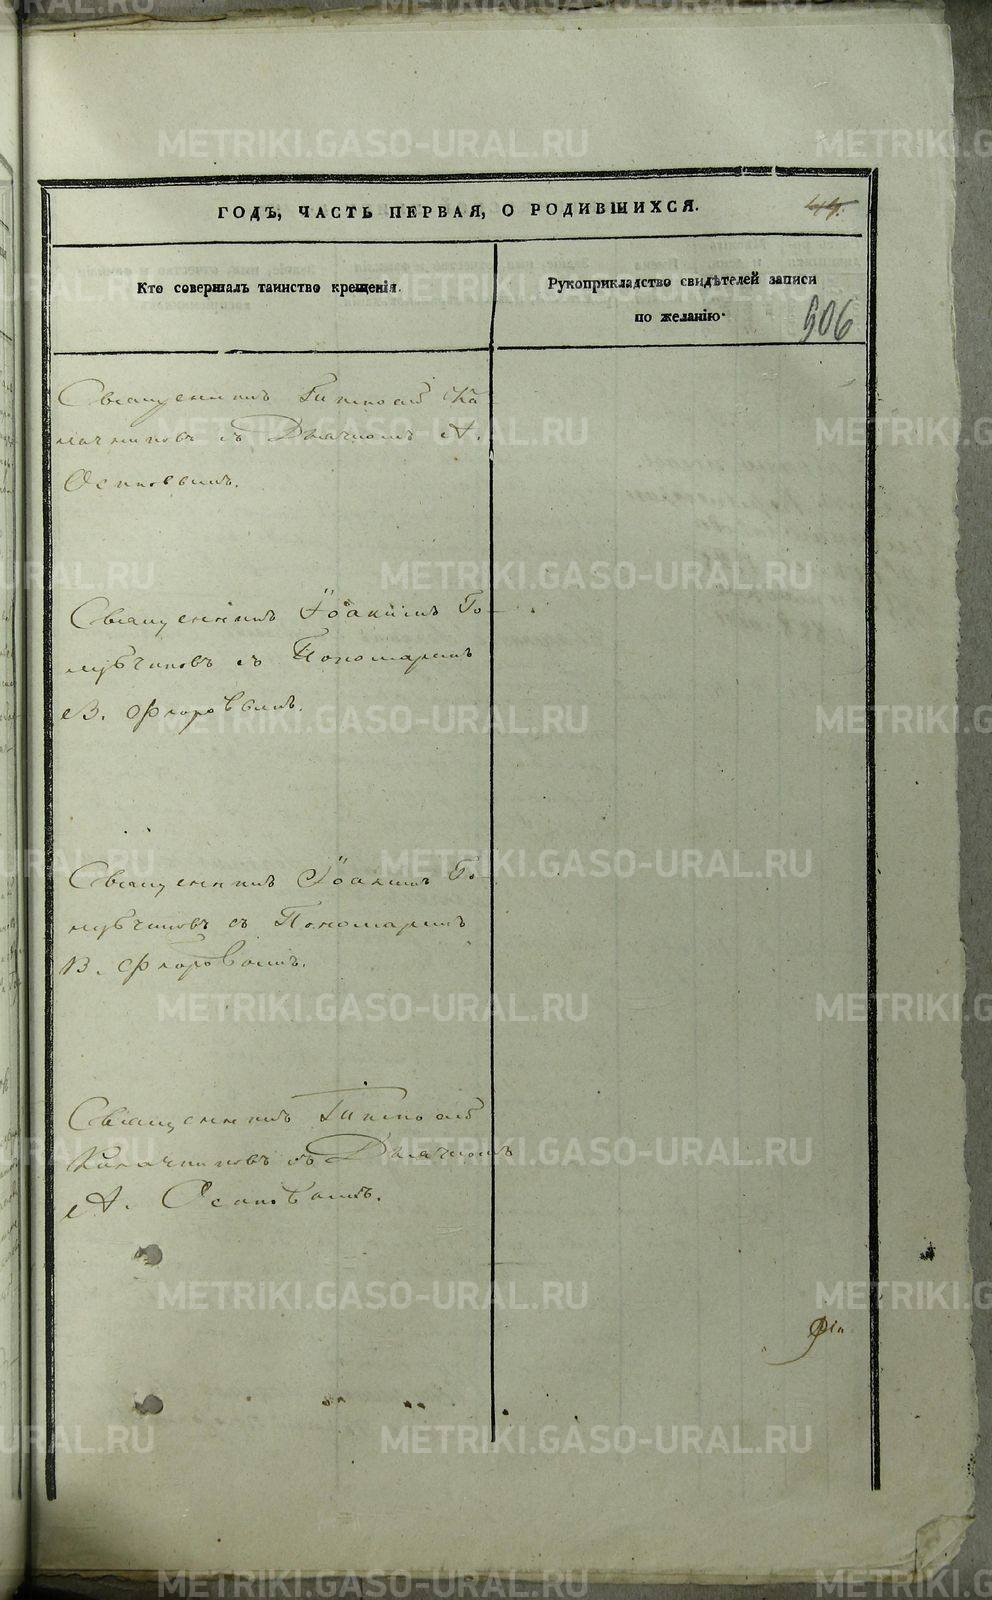 ГОДЪ, ЧАСТЬ ПЕРВАЯ, О РОДИВШИХСЯ.
44.
Кто совершалъ таинство крещенія.
Рукоприкладство свидѣтелей записи
по желанію.
906
Священникъ Ка
лачниковъ съ Дьячкомъ А.
Осиповымъ.
Священникъ Іоакимъ Го
лубчиковъ съ Пономаремъ
В. Флоровымъ.
Священникъ Іоакимъ Го
лубчиковъ съ Пономаремъ
В. Флоровымъ.
Священникъ
Калачниковъ съ Дьячкомъ
А. Осиповымъ.
METRIKI.GASO-URAL.RU